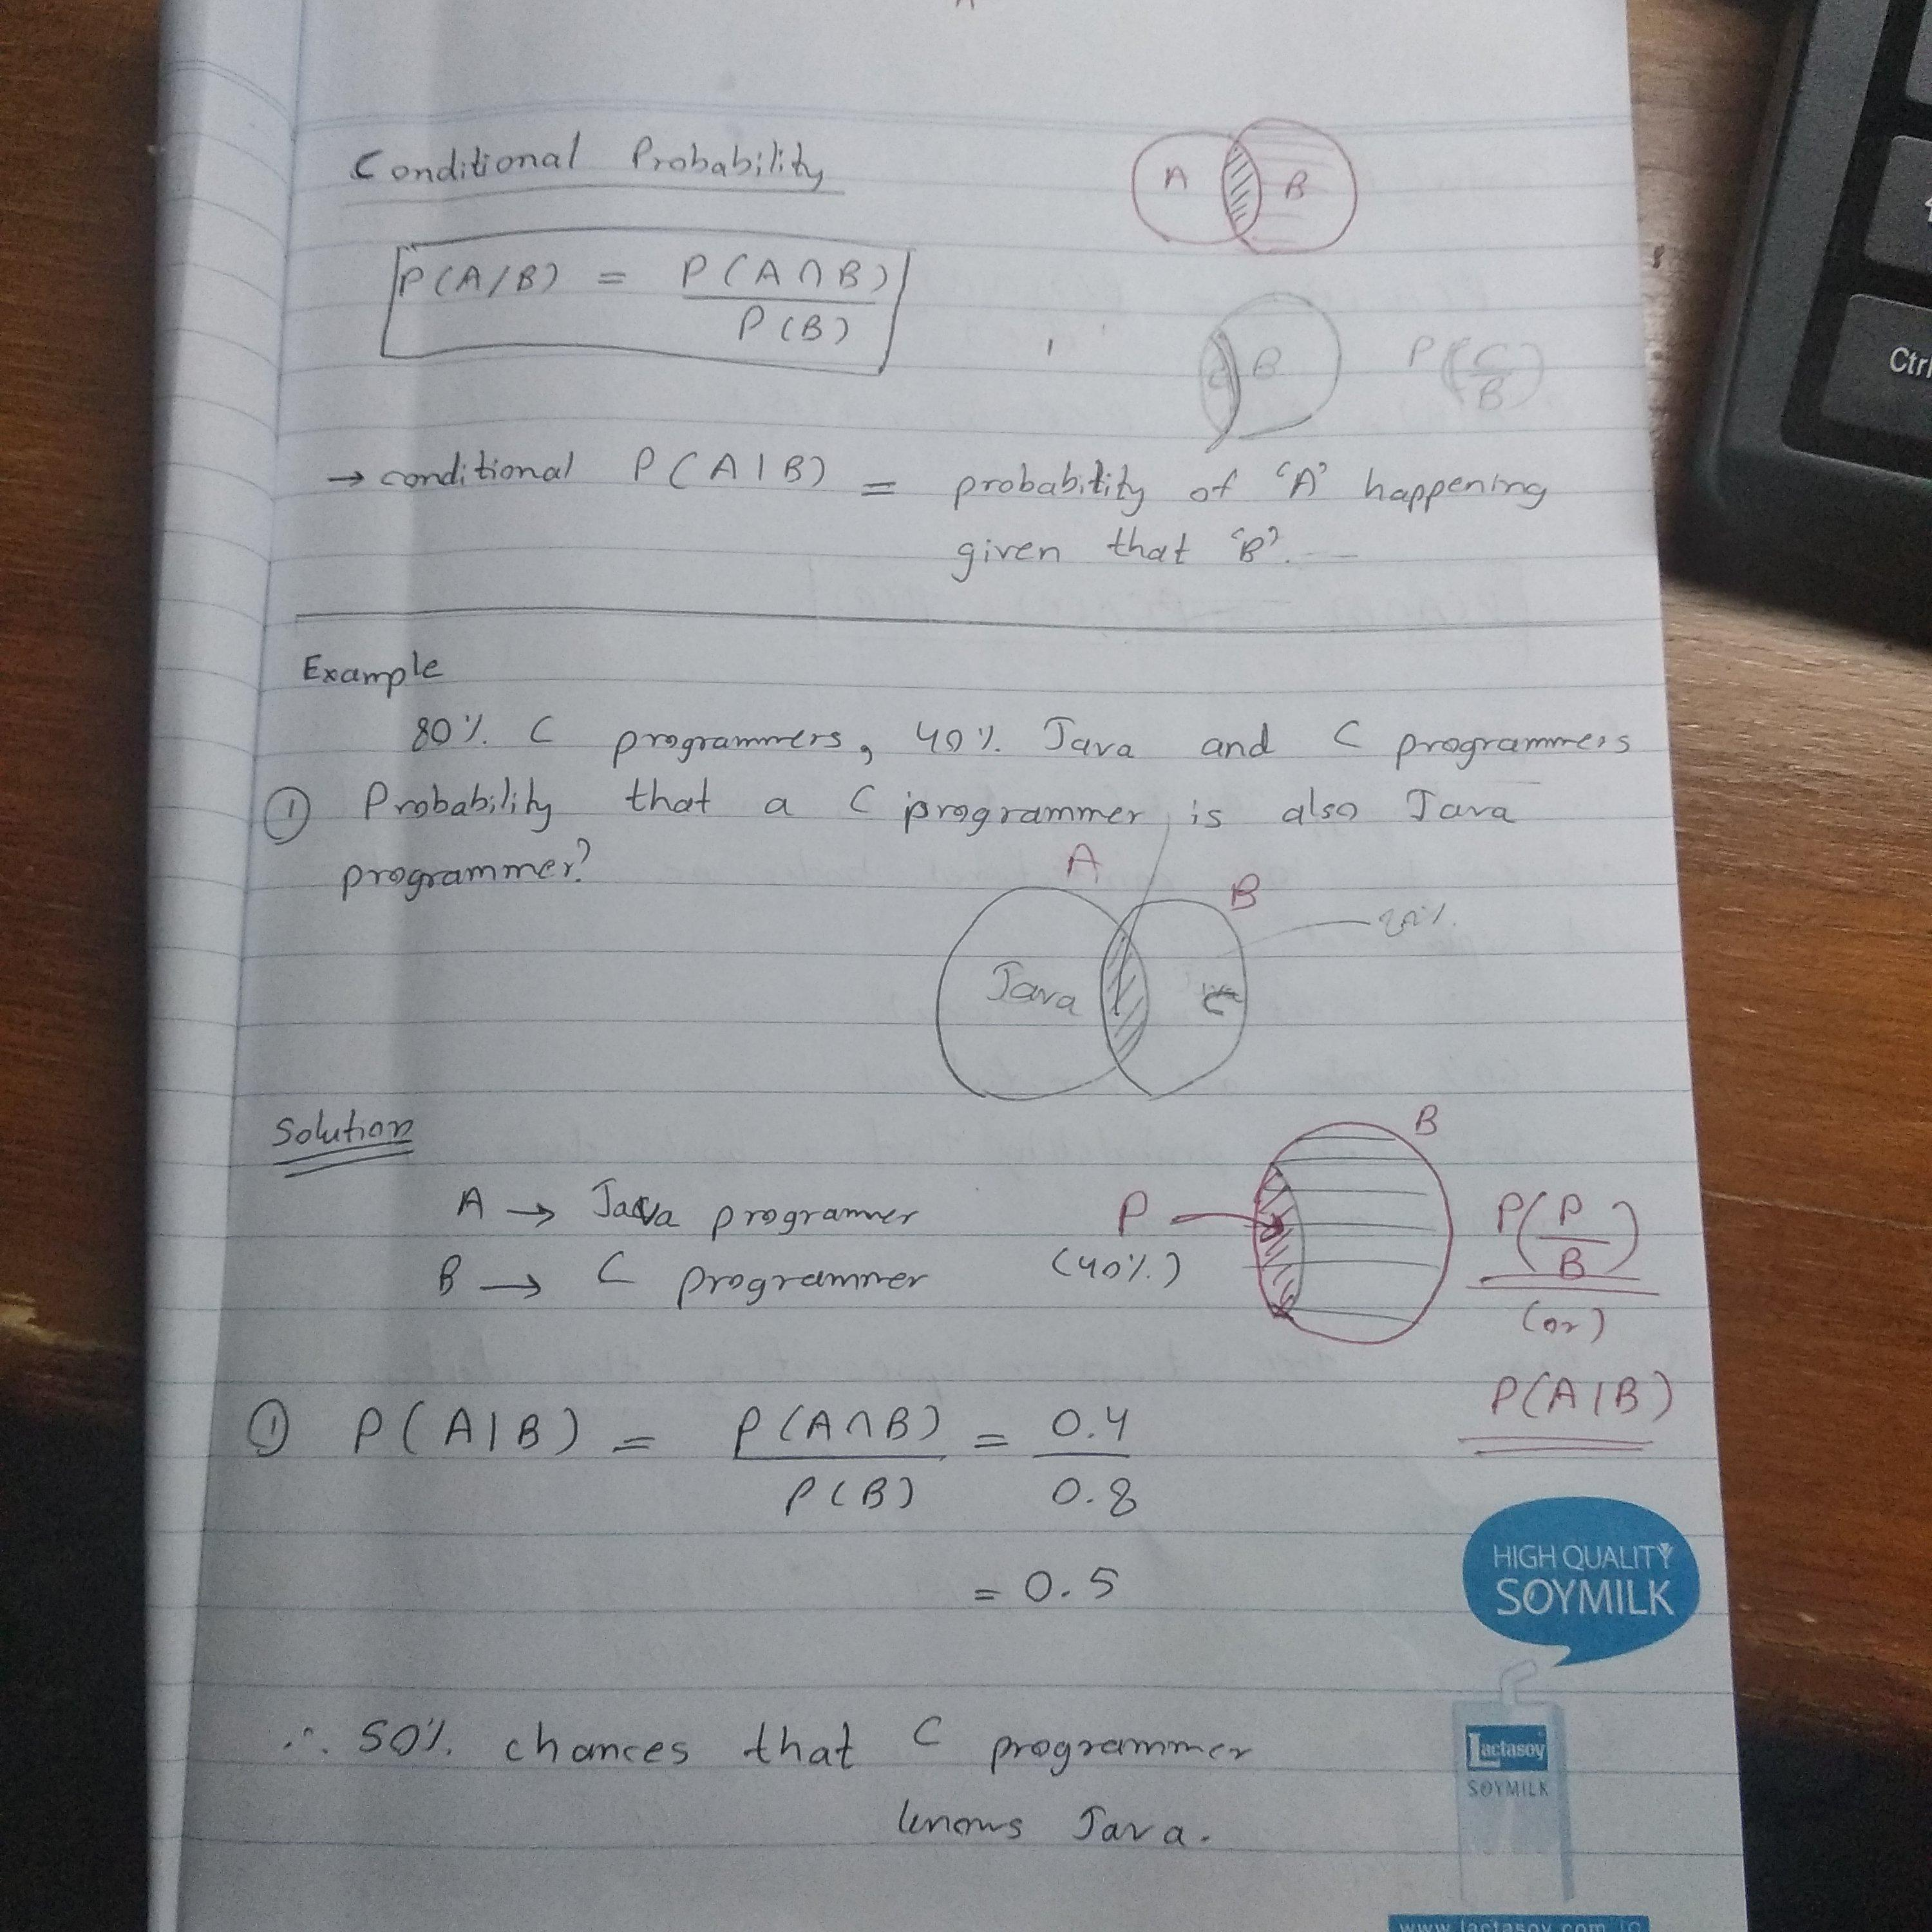 Conditional Probability
A B
P(A/B) = P(A∩B)
P(B)
B P(C/B)
→ conditional P(A|B) = probability of 'A' happening
given that 'B'.
Example
80% C programmers, 40% Java and C programmers
① Probability that a C programmer is also Java
programmer?
A
B
Java C
Solution
B
A → Java programmer
P
P(P/B)
B → C programmer
(40%)
(or)
P(A|B)
① P(A|B) = P(A∩B) = 0.4
P(B) 0.8
= 0.5
HIGH QUALITY
SOYMILK
∴ 50% chances that C programmer
knows Java.
Lactasoy
SOYMILK
www.lactasoy.com
Ctrl